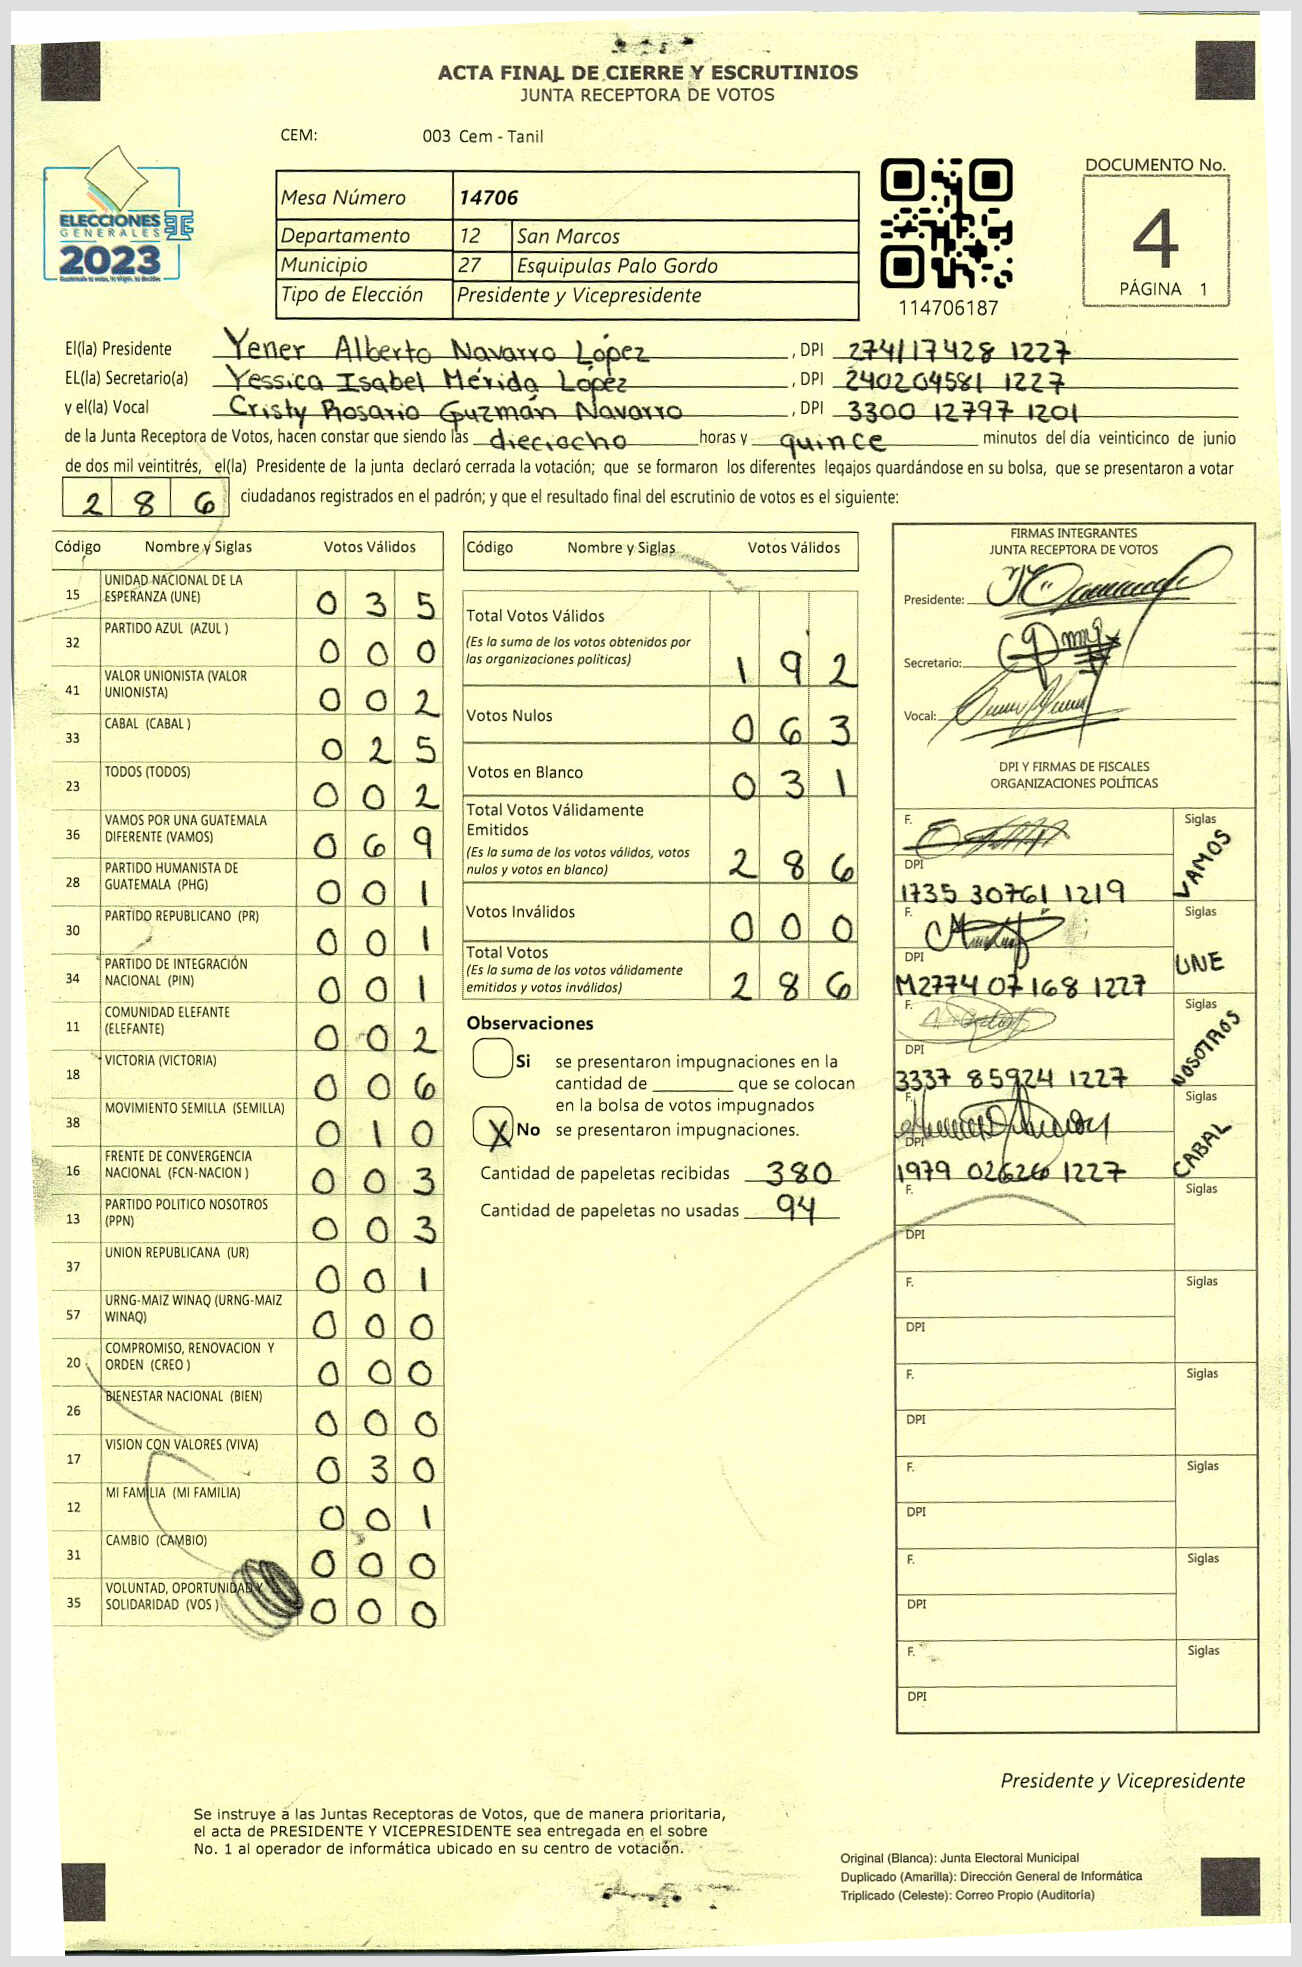 ACTA FINAL DE CIERRE Y ESCRUTINIOS
JUNTA RECEPTORA DE VOTOS
CEM: 003 Cem - Tanil
ELECCIONES
GENERALES
2023
Mesa Número 14706
Departamento 12 San Marcos
Municipio 27 Esquipulas Palo Gordo
Tipo de Elección Presidente y Vicepresidente
114706187
DOCUMENTO No.
4
PÁGINA 1
El(la) Presidente Yener Alberto Navarro López , DPI 274117428 1227
EL(la) Secretario(a) Yessica Isabel Mérida López , DPI 240204581 1227
y el(la) Vocal Cristy Rosario Guzmán Navarro , DPI 3300 12797 1201
de la Junta Receptora de Votos, hacen constar que siendo las dieciocho horas y quince minutos del día veinticinco de junio
de dos mil veintitrés, el(la) Presidente de la junta declaró cerrada la votación; que se formaron los diferentes legajos guardándose en su bolsa, que se presentaron a votar
286 ciudadanos registrados en el padrón; y que el resultado final del escrutinio de votos es el siguiente:
Código Nombre y Siglas Votos Válidos
15 UNIDAD NACIONAL DE LA
ESPERANZA (UNE) 0 3 5
32 PARTIDO AZUL (AZUL ) 0 0 0
41 VALOR UNIONISTA (VALOR
UNIONISTA) 0 0 2
33 CABAL (CABAL ) 0 2 5
23 TODOS (TODOS) 0 0 2
36 VAMOS POR UNA GUATEMALA
DIFERENTE (VAMOS) 0 6 9
28 PARTIDO HUMANISTA DE
GUATEMALA (PHG) 0 0 1
30 PARTIDO REPUBLICANO (PR) 0 0 1
34 PARTIDO DE INTEGRACIÓN
NACIONAL (PIN) 0 0 1
11 COMUNIDAD ELEFANTE
(ELEFANTE) 0 0 2
18 VICTORIA (VICTORIA) 0 0 6
38 MOVIMIENTO SEMILLA (SEMILLA) 0 1 0
16 FRENTE DE CONVERGENCIA
NACIONAL (FCN-NACION ) 0 0 3
13 PARTIDO POLITICO NOSOTROS
(PPN) 0 0 3
37 UNION REPUBLICANA (UR) 0 0 1
57 URNG-MAIZ WINAQ (URNG-MAIZ
WINAQ) 0 0 0
20 COMPROMISO, RENOVACION Y
ORDEN (CREO ) 0 0 0
26 BIENESTAR NACIONAL (BIEN) 0 0 0
17 VISION CON VALORES (VIVA) 0 3 0
12 MI FAMILIA (MI FAMILIA) 0 0 1
31 CAMBIO (CAMBIO) 0 0 0
35 VOLUNTAD, OPORTUNIDAD Y
SOLIDARIDAD (VOS ) 0 0 0
Código Nombre y Siglas Votos Válidos
Total Votos Válidos
(Es la suma de los votos obtenidos por
las organizaciones políticas) 1 9 2
Votos Nulos 0 6 3
Votos en Blanco 0 3 1
Total Votos Válidamente
Emitidos
(Es la suma de los votos válidos, votos
nulos y votos en blanco) 2 8 6
Votos Inválidos 0 0 0
Total Votos
(Es la suma de los votos válidamente
emitidos y votos inválidos) 2 8 6
Observaciones
Si se presentaron impugnaciones en la
cantidad de ________ que se colocan
en la bolsa de votos impugnados
X No se presentaron impugnaciones.
Cantidad de papeletas recibidas 380
Cantidad de papeletas no usadas 94
FIRMAS INTEGRANTES
JUNTA RECEPTORA DE VOTOS
Presidente:
Secretario:
Vocal:
DPI Y FIRMAS DE FISCALES
ORGANIZACIONES POLÍTICAS
F. Siglas
VAMOS
DPI
1735 30761 1219
F. Siglas
UNE
DPI
M2774 07168 1227
F. Siglas
NOSOTROS
DPI
3337 85924 1227
F. Siglas
CABAL
DPI
1979 02626 1227
F. Siglas
DPI
F. Siglas
DPI
F. Siglas
DPI
F. Siglas
DPI
F. Siglas
DPI
F. Siglas
DPI
Presidente y Vicepresidente
Se instruye a las Juntas Receptoras de Votos, que de manera prioritaria,
el acta de PRESIDENTE Y VICEPRESIDENTE sea entregada en el sobre
No. 1 al operador de informática ubicado en su centro de votación.
Original (Blanca): Junta Electoral Municipal
Duplicado (Amarilla): Dirección General de Informática
Triplicado (Celeste): Correo Propio (Auditoría)